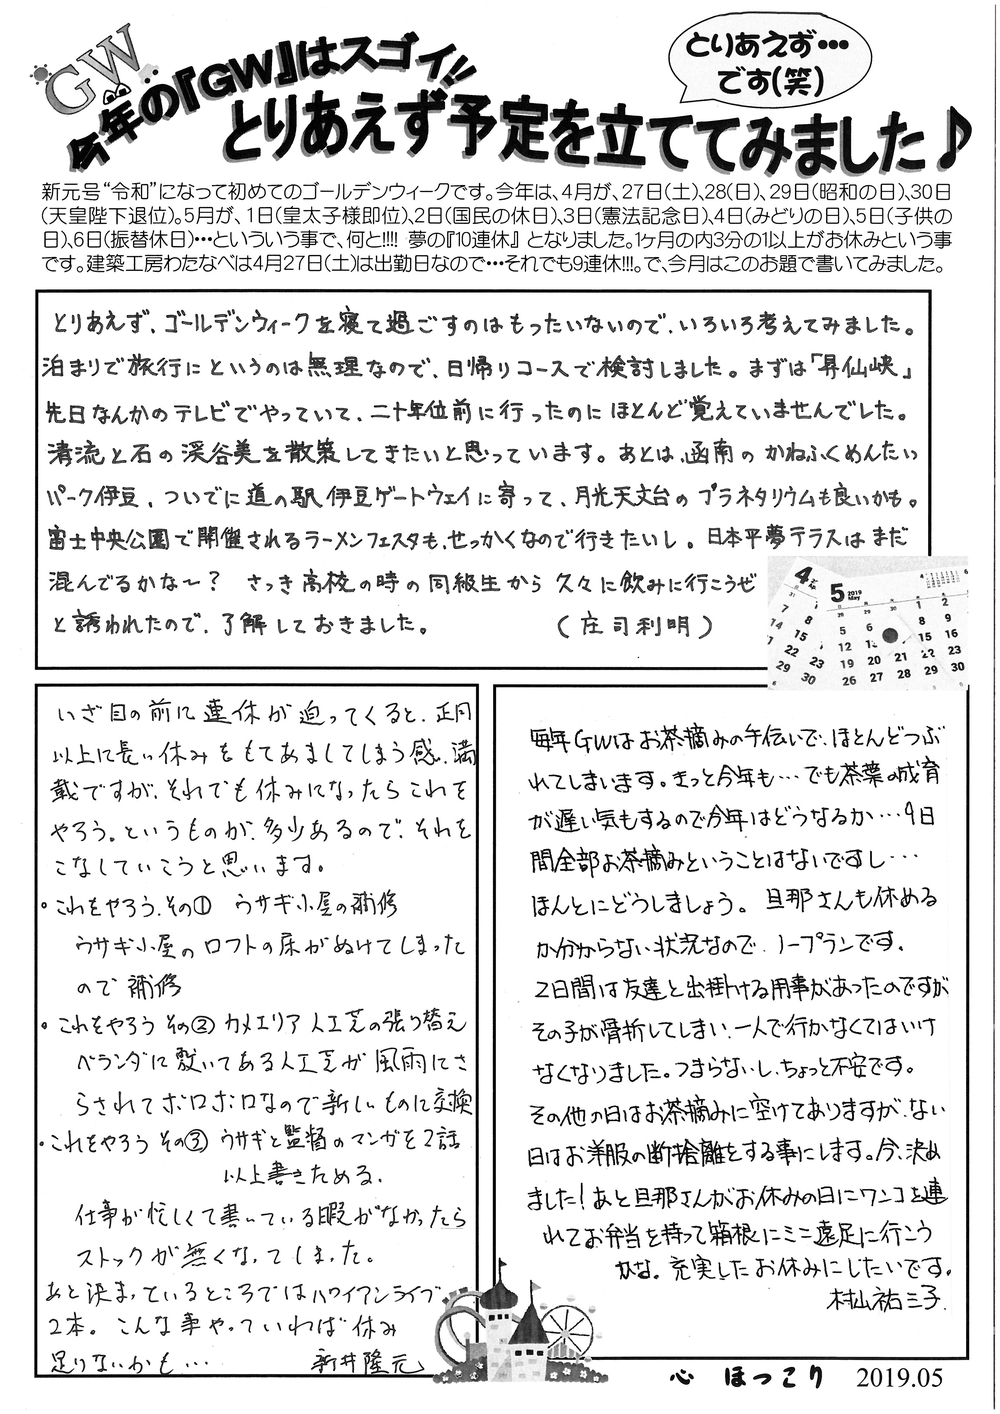 GW
今年の『GW』はスゴイ!!
とりあえず…
です(笑)
とりあえず予定を立ててみました♪
新元号“令和”になって初めてのゴールデンウィークです。今年は、4月が、27日(土)、28(日)、29日(昭和の日)、30日
(天皇陛下退位)。5月が、1日(皇太子様即位)、2日(国民の休日)、3日(憲法記念日)、4日(みどりの日)、5日(子供の
日)、6日(振替休日)…といういう事で、何と!!!! 夢の『10連休』 となりました。1ヶ月の内3分の1以上がお休みという事
です。建築工房わたなべは4月27日(土)は出勤日なので…それでも9連休!!!。で、今月はこのお題で書いてみました。
とりあえず、ゴールデンウィークを寝て過ごすのはもったいないので、いろいろ考えてみました。
泊まりで旅行にというのは無理なので、日帰りコースで検討しました。まずは「昇仙峡」
先日なんかのテレビでやっていて、二十年位前に行ったのにほとんど覚えていませんでした。
清流と石の渓谷美を散策してきたいと思っています。あとは、函南のかねふくめんたい
パーク伊豆、ついでに道の駅伊豆ゲートウェイに寄って、月光天文台のプラネタリウムも良いかも。
富士中央公園で開催されるラーメンフェスタも、せっかくなので行きたいし。日本平夢テラスはまだ
混んでるかな〜? さっき高校の時の同級生から久々に飲みに行こうぜ
と誘われたので、了解しておきました。 (庄司利明)
4
5 2019 May
いざ目の前に連休が迫ってくると、正月
以上に長い休みをもてあましてしまう感、満
載ですが、それでも休みになったらこれを
やろう。というものが、多少あるので、それを
こなしていこうと思います。
・これをやろう、その① ウサギ小屋の補修
ウサギ小屋のロフトの床がぬけてしまった
ので補修
・これをやろう その② カメエリア人工芝の張り替え
ベランダに敷いてある人工芝が風雨にさ
らされてボロボロなので新しいものに交換
・これをやろう その③ ウサギと監督のマンガを2話
以上書きためる。
仕事が忙しくて書いている暇がなかったら
ストックが無くなってしまった。
あと決まっているところではハワイアンライブ
2本。こんな事やっていれば休み
足りないかも… 新井隆元
毎年GWはお茶摘みの手伝いで、ほとんどつぶ
れてしまいます。きっと今年も…でも茶葉の成育
が遅い気もするので今年はどうなるか…9日
間全部お茶摘みということはないですし…
ほんとにどうしましょう。旦那さんも休める
か分からない状況なので、ノープランです。
2日間は友達と出掛ける用事があったのですが
その子が骨折してしまい、一人で行かなくてはいけ
なくなりました。つまらないし、ちょっと不安です。
その他の日はお茶摘みに空けてありますが、ない
日はお洋服の断捨離をする事にします。今、決め
ました!あと旦那さんがお休みの日にワンコを連
れてお弁当を持って箱根にミニ遠足に行こう
かな。充実したお休みにしたいです。
村山祐三子
心 ほっこり 2019.05